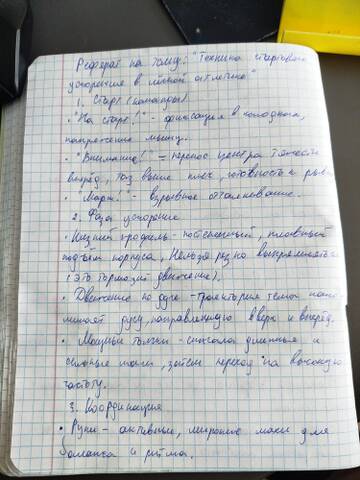 Реферат на тему: "Техника стартового
ускорения в лёгкой атлетике"
1. Старт (команды)
• "На старт!" - фиксация в колодках,
напряжение мышц.
• "Внимание!" - перенос центра тяжести
вперёд, таз выше плеч, готовность к рывку
• "Марш!" - взрывное отталкивание.
2. Фаза ускорения
• Низкий профиль - постепенный, плавный
подъём корпуса, нельзя резко выпрямляться
(это тормозит движение).
• Движение по дуге - траектория тела напо-
минает дугу, направленную вверх и вперёд.
• Мощные толчки - сначала длинные и
сильные шаги, затем переход на высокую
частоту.
3. Координация
• Руки - активные, широкие махи для
баланса и ритма.